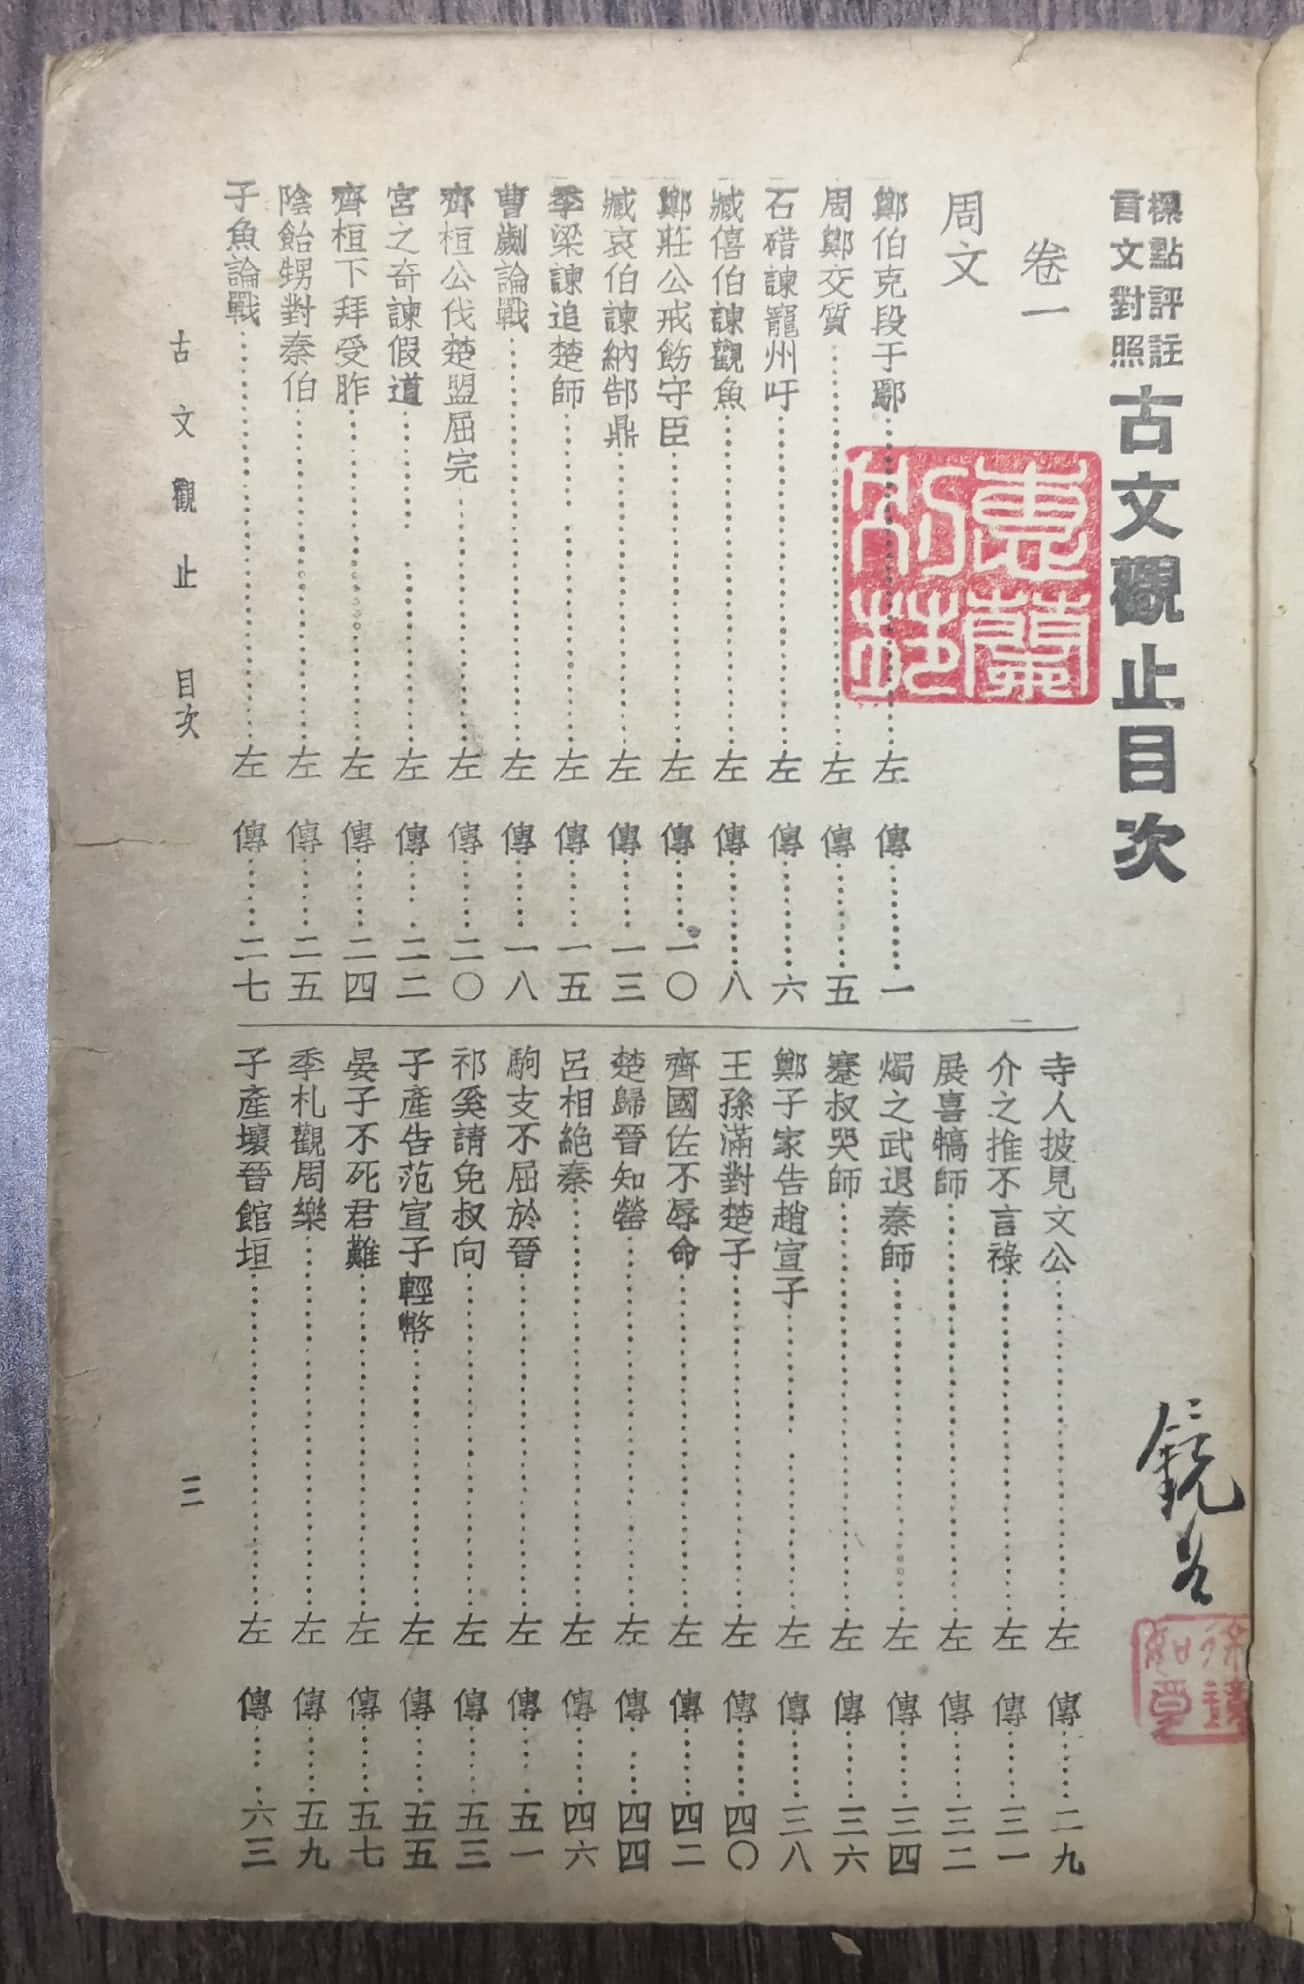 標點評註
言文對照
古文觀止目次
卷一
周文
鄭伯克段于鄢……左傳……一
周鄭交質……左傳……五
石碏諫寵州吁……左傳……六
臧僖伯諫觀魚……左傳……八
鄭莊公戒飭守臣……左傳……一〇
臧哀伯諫納郜鼎……左傳……一三
季梁諫追楚師……左傳……一五
曹劌論戰……左傳……一八
齊桓公伐楚盟屈完……左傳……二〇
宮之奇諫假道……左傳……二二
齊桓下拜受胙……左傳……二四
陰飴甥對秦伯……左傳……二五
子魚論戰……左傳……二七
寺人披見文公……左傳……二九
介之推不言祿……左傳……三一
展喜犒師……左傳……三二
燭之武退秦師……左傳……三四
蹇叔哭師……左傳……三六
鄭子家告趙宣子……左傳……三八
王孫滿對楚子……左傳……四〇
齊國佐不辱命……左傳……四二
楚歸晉知罃……左傳……四四
呂相絕秦……左傳……四六
駒支不屈於晉……左傳……五一
祁奚請免叔向……左傳……五三
子產告范宣子輕幣……左傳……五五
晏子不死君難……左傳……五七
季札觀周樂……左傳……五九
子產壞晉館垣……左傳……六三
古文觀止 目次